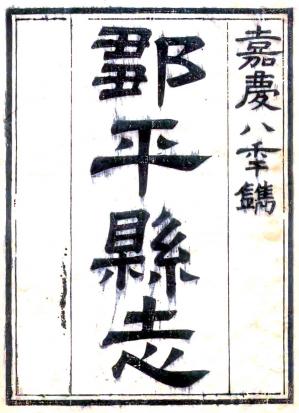 嘉慶八年鐫
鄒平縣志